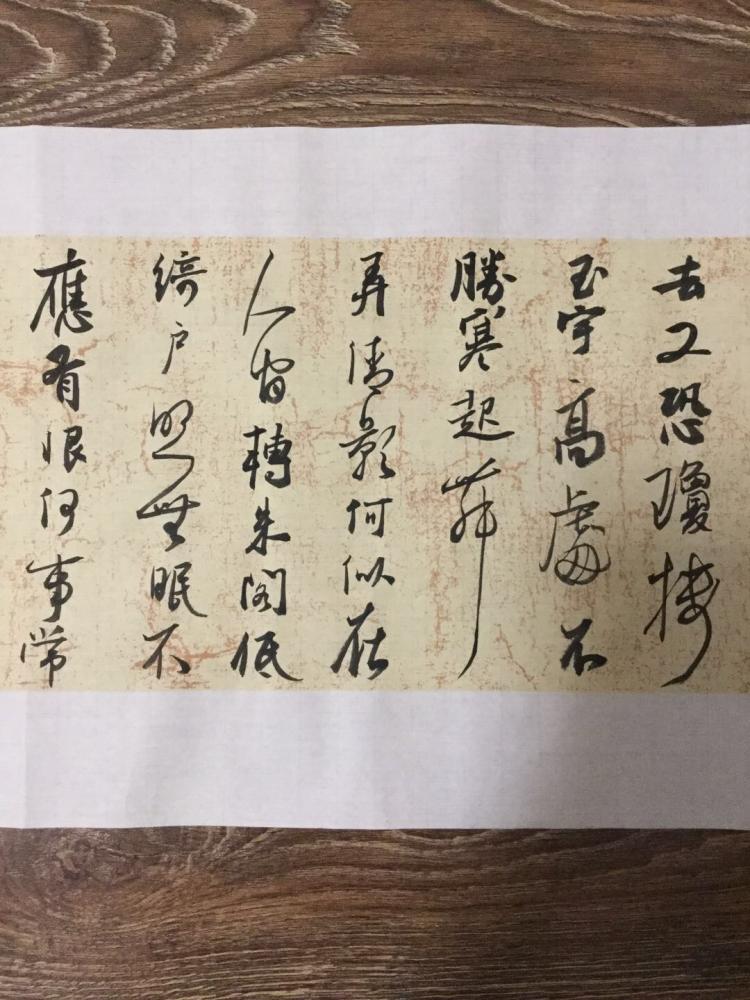 去又恐瓊樓
玉宇高處不
勝寒起舞
弄清影何似在
人間轉朱閣低
綺戶照無眠不
應有恨何事常